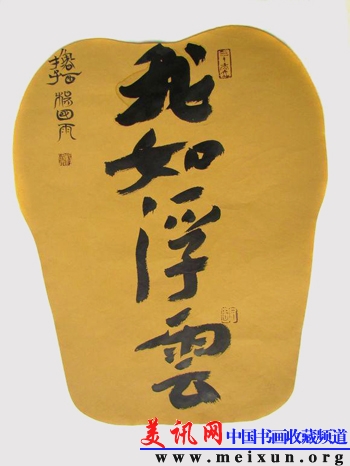 我如浮雲
美讯网 中国书画收藏频道
www.meixun.org